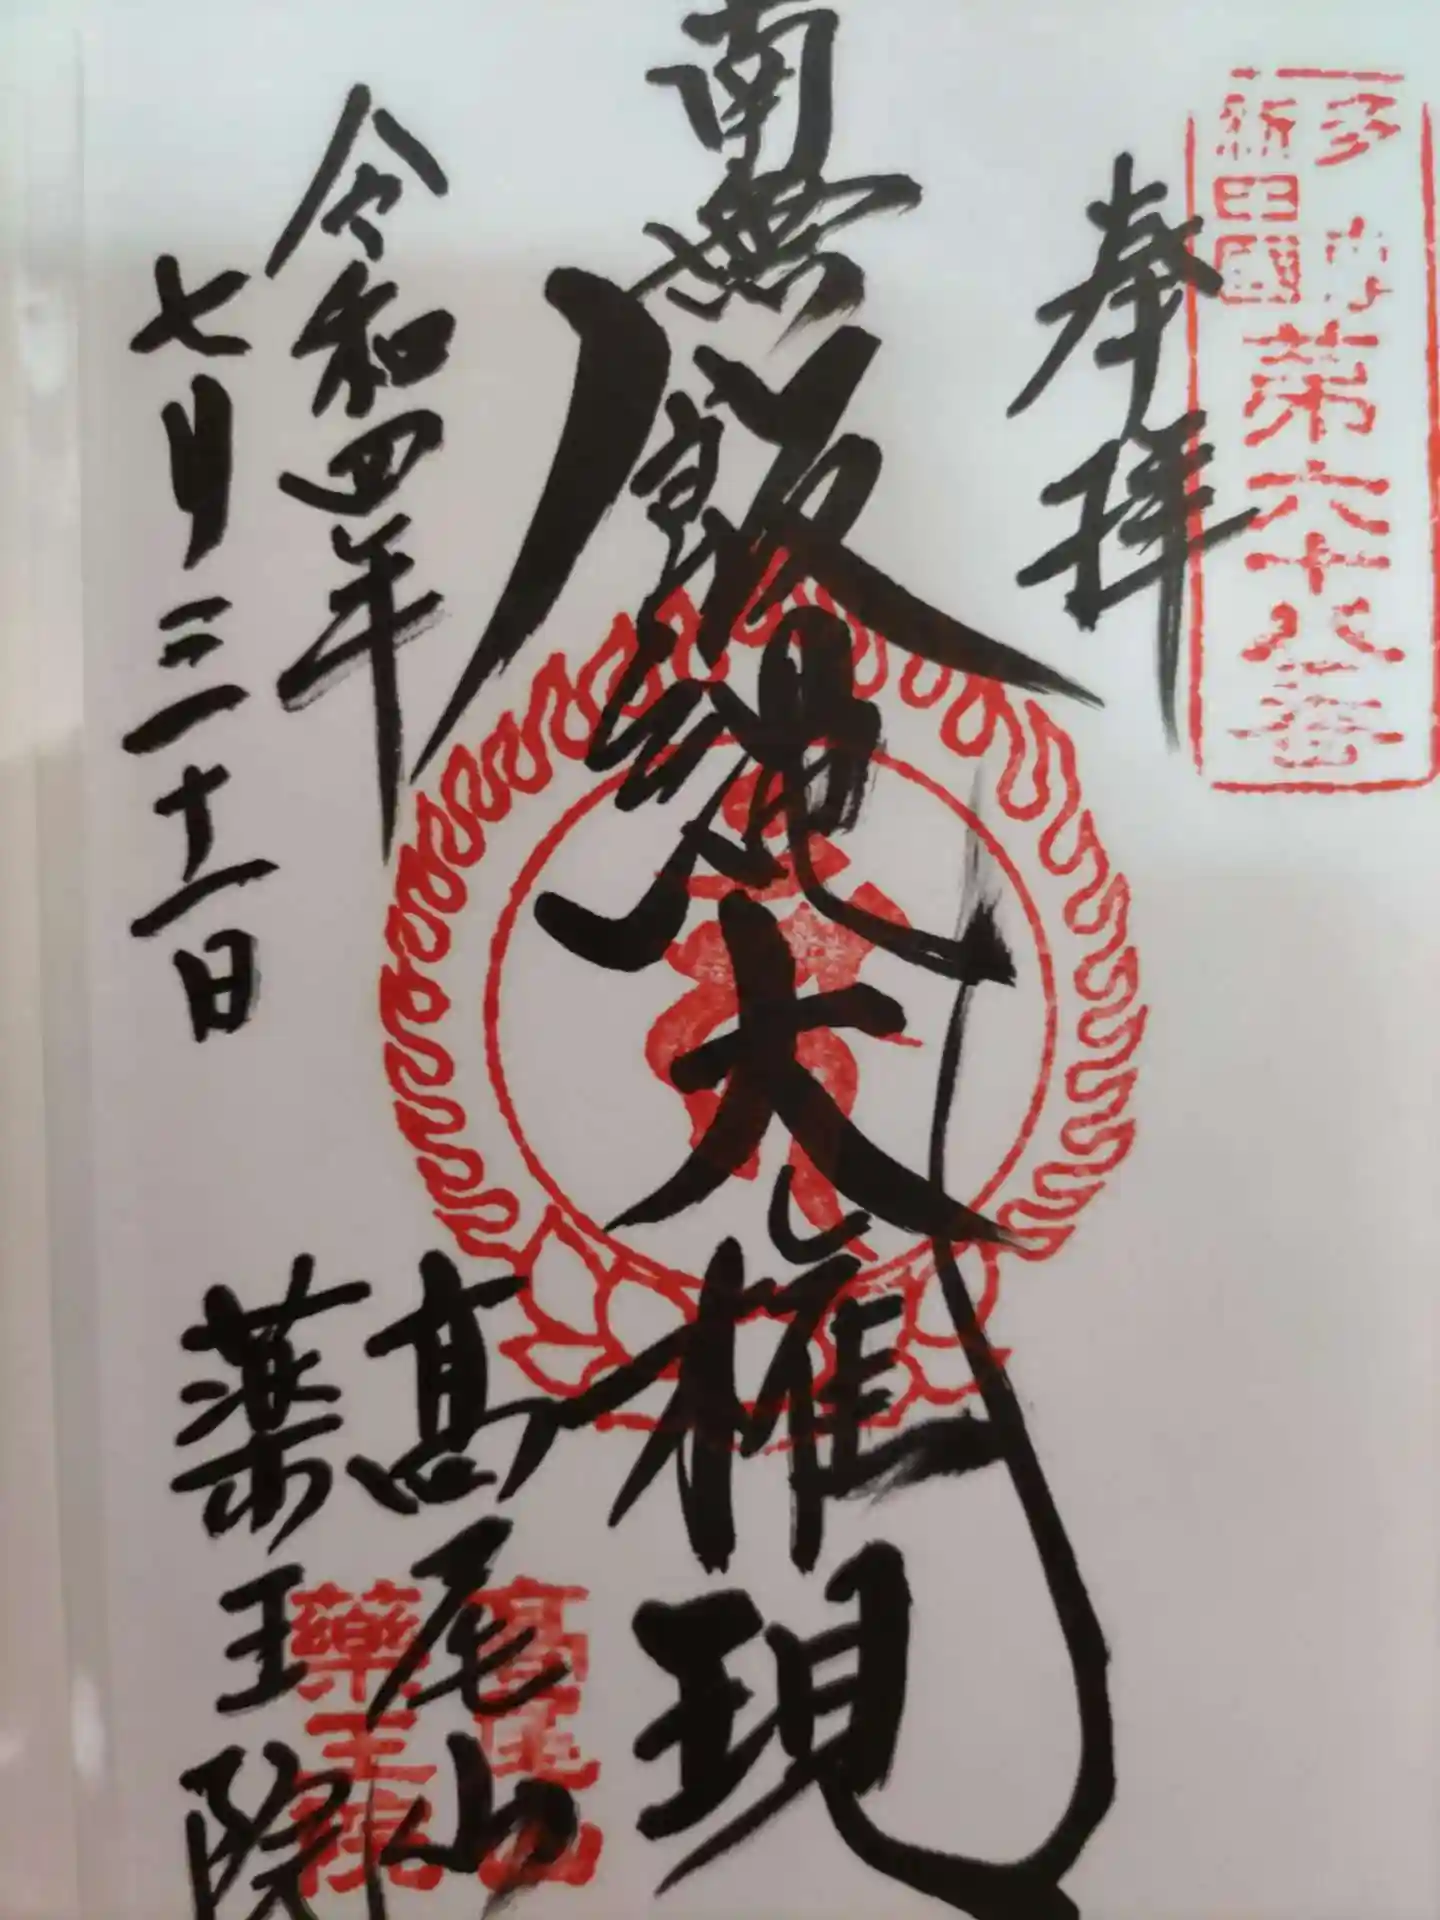 奉拝
第六十八番
多
新四國
南無飯縄大権現
令和四年
七月三十一日
高尾山
薬王院
高尾山
薬王院